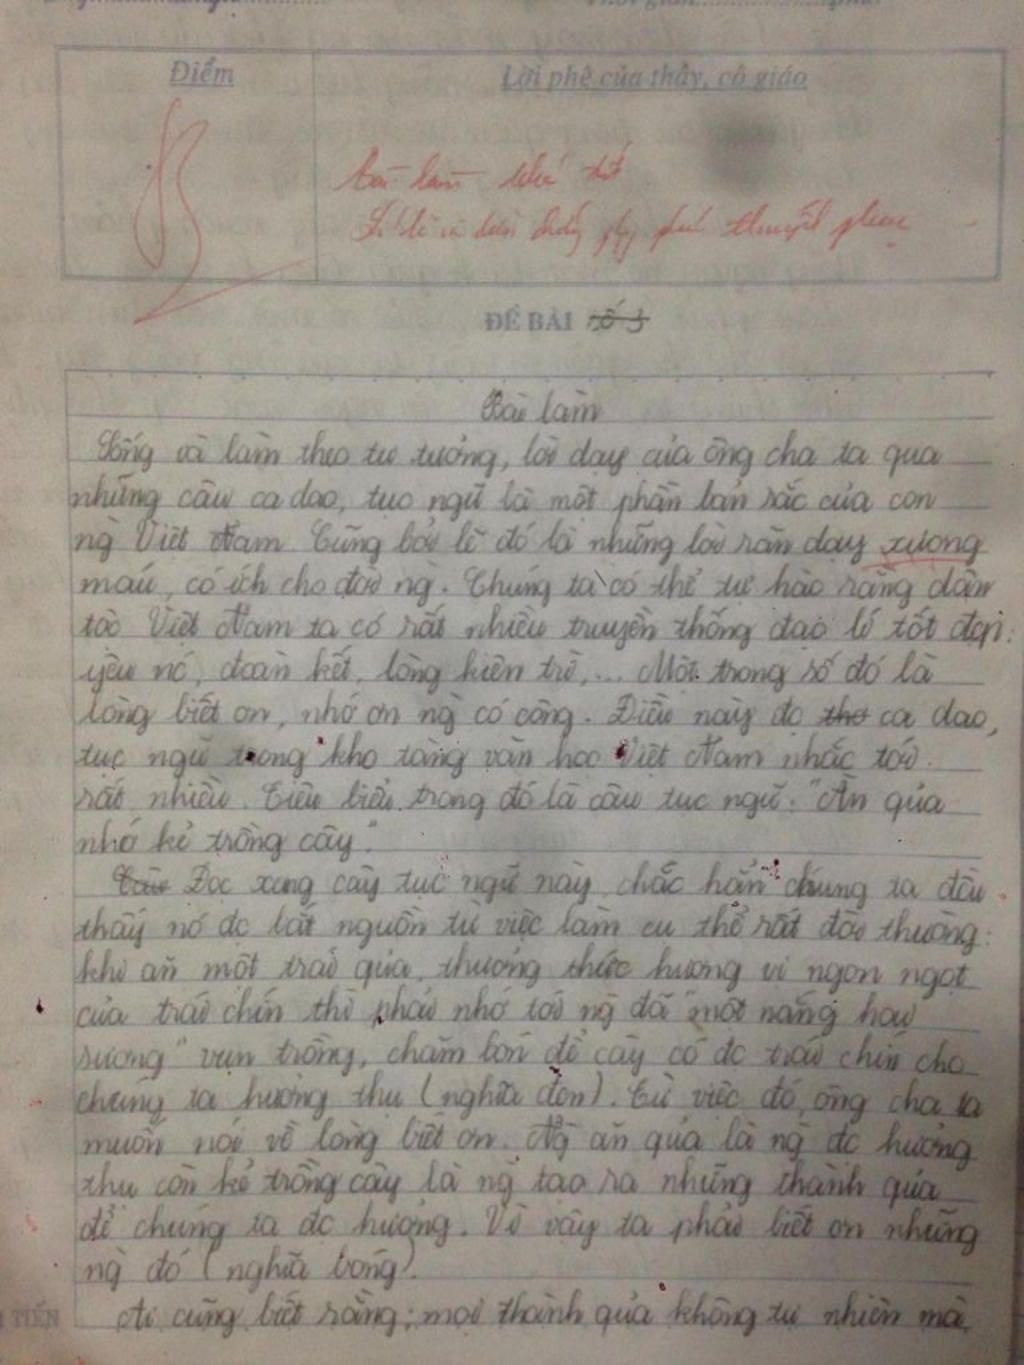 Điểm
Lời phê của thầy, cô giáo
Bài làm khá tốt
Lí lẽ và dẫn chứng thuyết phục
ĐỀ BÀI số 3
Bài làm
Sống và làm theo tư tưởng, lời dạy của ông cha ta qua
những câu ca dao, tục ngữ là một phần bản sắc của con
ng` Việt Nam. Cũng bởi lẽ đó là những lời răn dạy xương
máu, có ích cho đời ng`. Chúng ta có thể tự hào rằng dân
tộc Việt Nam ta có rất nhiều truyền thống đạo lí tốt đẹp:
yêu nc', đoàn kết, lòng kiên trì,... Một trong số đó là
lòng biết ơn, nhớ ơn ng` có công. Điều này đc tho ca dao,
tục ngữ trong kho tàng văn học Việt Nam nhắc tới
rất nhiều. Tiêu biểu trong đó là câu tục ngữ: "Ăn qủa
nhớ kẻ trồng cây".
Câu Đọc xong câu tục ngữ này, chắc hẳn chúng ta đều
thấy nó đc bắt nguồn từ việc làm cụ thể rất đời thường:
khi ăn một trái qủa, thưởng thức hương vị ngon ngọt
của trái chín thì phải nhớ tới ng` đã "một nắng hai
sương" vun trồng, chăm bón để cây có đc trái chín cho
chúng ta hưởng thụ (nghĩa đen). Từ việc đó, ông cha ta
muốn nói về lòng biết ơn. Ng` ăn qủa là ng` đc hưởng
thụ còn kẻ trồng cây là ng` tạo ra những thành qủa
để chúng ta đc hưởng. Vì vậy ta phải biết ơn những
ng` đó (nghĩa bóng).
Ai cũng biết rằng; mọi thành qủa không tự nhiên mà
TIẾN